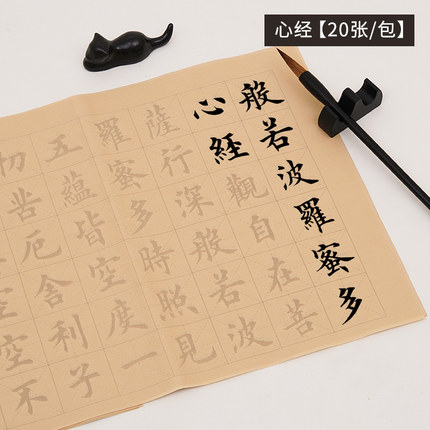 心经【20张/包】
般若波羅蜜多
心經觀自在菩
薩行深般若波
羅蜜多時照見
五蘊皆空度一
切苦厄舍利子
空不